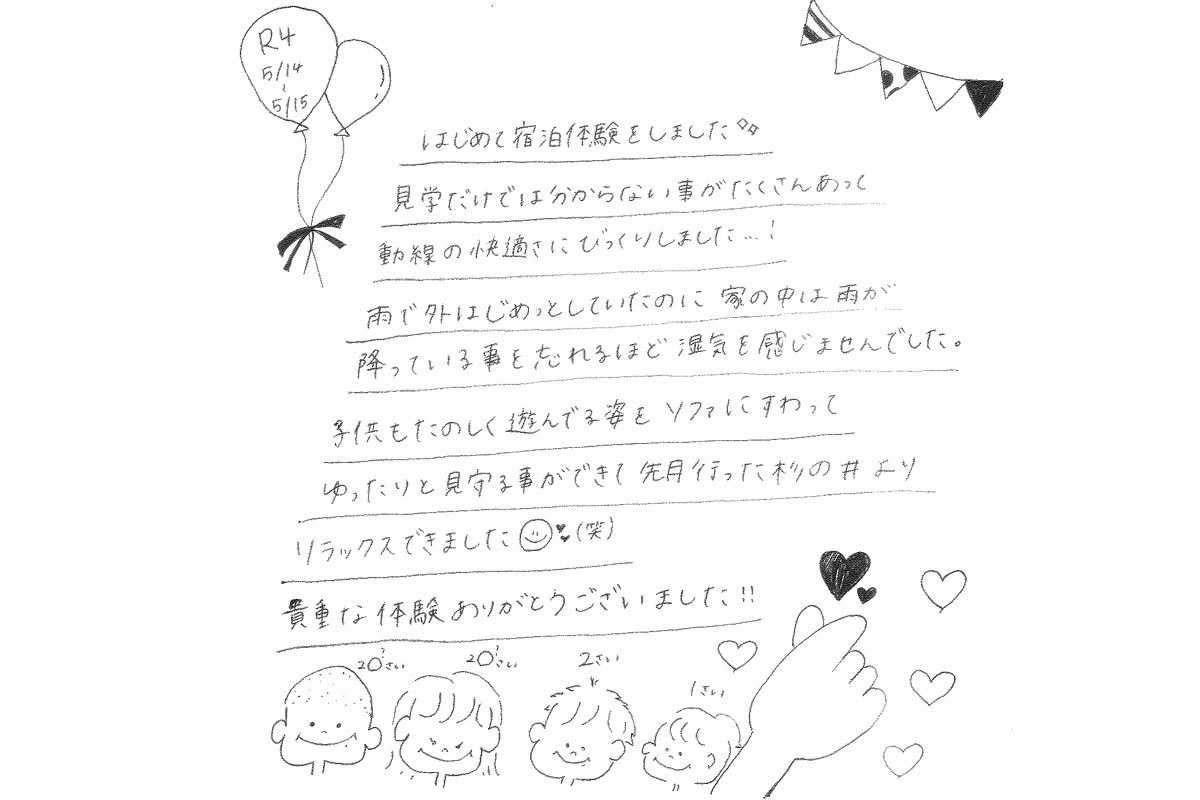 R4
5/14
~
5/15
はじめて宿泊体験をしました
見学だけでは分からない事がたくさんあって
動線の快適さにびっくりしました…!
雨で外はじめっとしていたのに 家の中は雨が
降っている事を忘れるほど 湿気を感じませんでした。
子供もたのしく遊んでる姿を ソファにすわって
ゆったりと見守る事ができて 先月行った杉の井より
リラックスできました(笑)
貴重な体験ありがとうございました!!
20?さい
20?さい
2さい
1さい